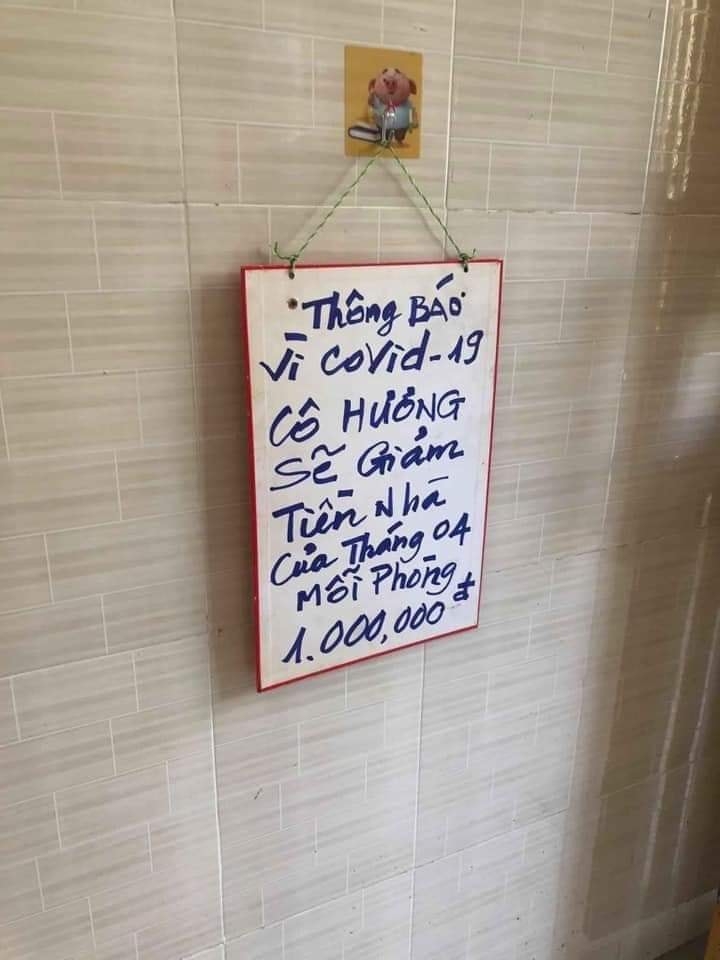 Thông BÁO
Vì COVid-19
CÔ HƯỜNG
Sẽ Giảm
Tiền Nhà
Của Tháng 04
Mỗi Phòng
1.000,000 đ